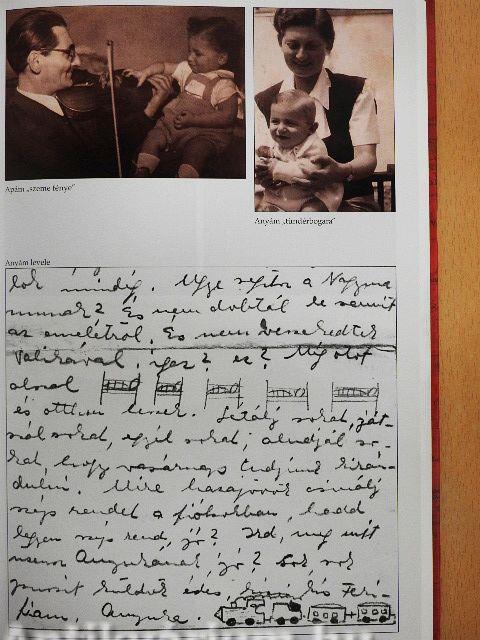 Apám „szeme fénye"
Anyám „tündérbogara"
Anyám levele
lok mindig. Ugye segítsz a Nagyma
mának? És nem dobtál le semmit
az emeletről. És nem verekedtek
Valikával, igaz? ez? Még ötöt
alszol
és otthon leszek. Sétálj sokat, ját-
szál sokat, egyél sokat, aludjál so-
kat, hogy vasárnap tudjunk kirán-
dulni. Mire hazajövök csinálj
szép rendet a fiókokban, hadd
legyen szép rend, jó? Írd, meg mit
Anyukának, jó? Sok sok
puszit küldök édes kis Feri-
kám, Anyuka.